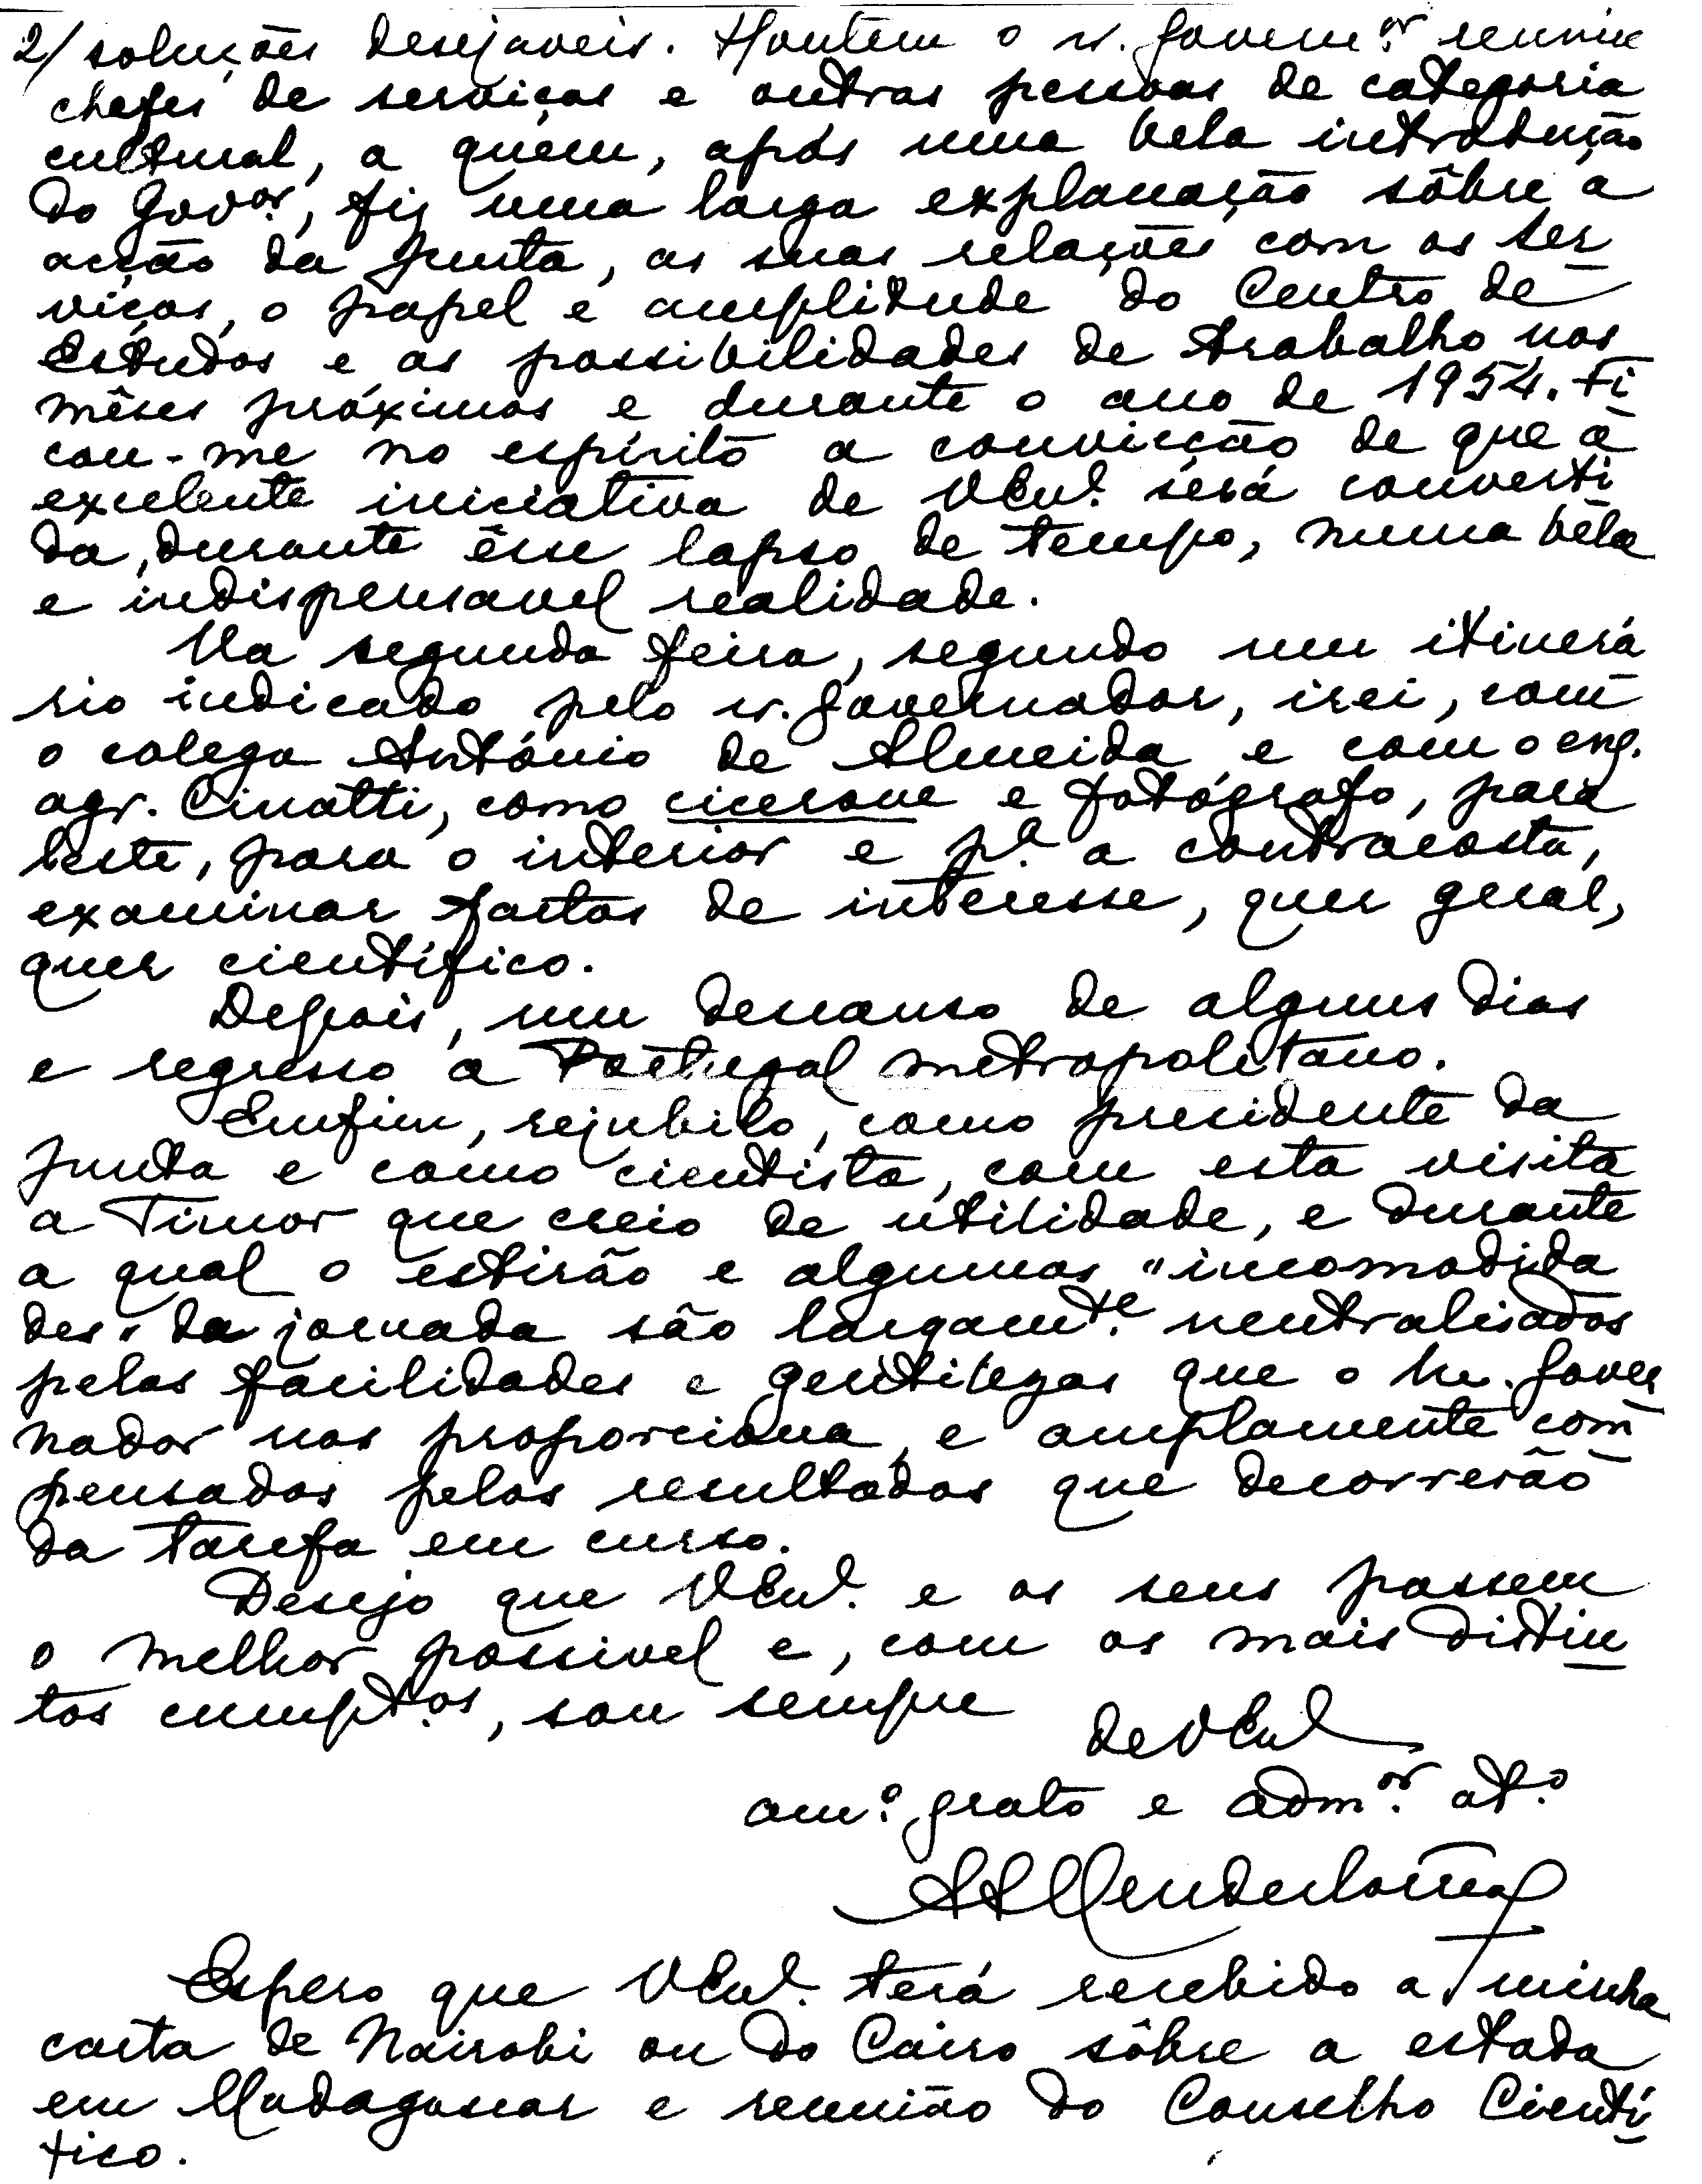 2/ soluções desejaveis. Hontem o sr. Govern.or reuniu
chefes de serviços e outras pessoas de categoria
cultural, a quem, após uma bela introdução
do Gov.or, fiz uma larga explanação sôbre a
acção da Junta, as suas relações com os ser
viços, o papel e amplitude do Centro de
Estudos e as possibilidades de trabalho nos
mêses próximos e durante o ano de 1954. Fi
cou-me no espírito a convicção de que a
excelente iniciativa de V Ex.ª será converti
da, durante êsse lapso de tempo, numa bela
e indispensavel realidade.
Na segunda feira, segundo um itinerá
rio indicado pelo sr. Governador, irei, com
o colega António de Almeida e com o eng.
agr. Cinatti, como cicerone e fotógrafo, para
leste, para o interior e p.ª a contracosta,
examinar factos de interesse, quer geral,
quer científico.
Depois, um descanso de alguns dias
e regresso a Portugal metropolitano.
Emfim, rejubilo, como presidente da
Junta e como cientista, com esta visita
a Timor que creio de utilidade, e durante
a qual o estirão e algumas "incomodida
des" da jornada são largam.te neutralisados
pelas facilidades e gentilezas que o sr. Gover
nador nos proporciona, e amplamente com
pensados pelos resultados que decorrerão
da tarefa em curso.
Desejo que V Ex.ª e os seus passem
o melhor possivel e, com os mais distin
tos cumpt.os, sou sempre
de V Ex.ª
am.º grato e adm.or at.º
A A Mendes Corrêa
Espero que V Ex.ª terá recebido a minha
carta de Nairobi ou do Cairo sôbre a estada
em Madagascar e reunião do Conselho Cientí
fico.